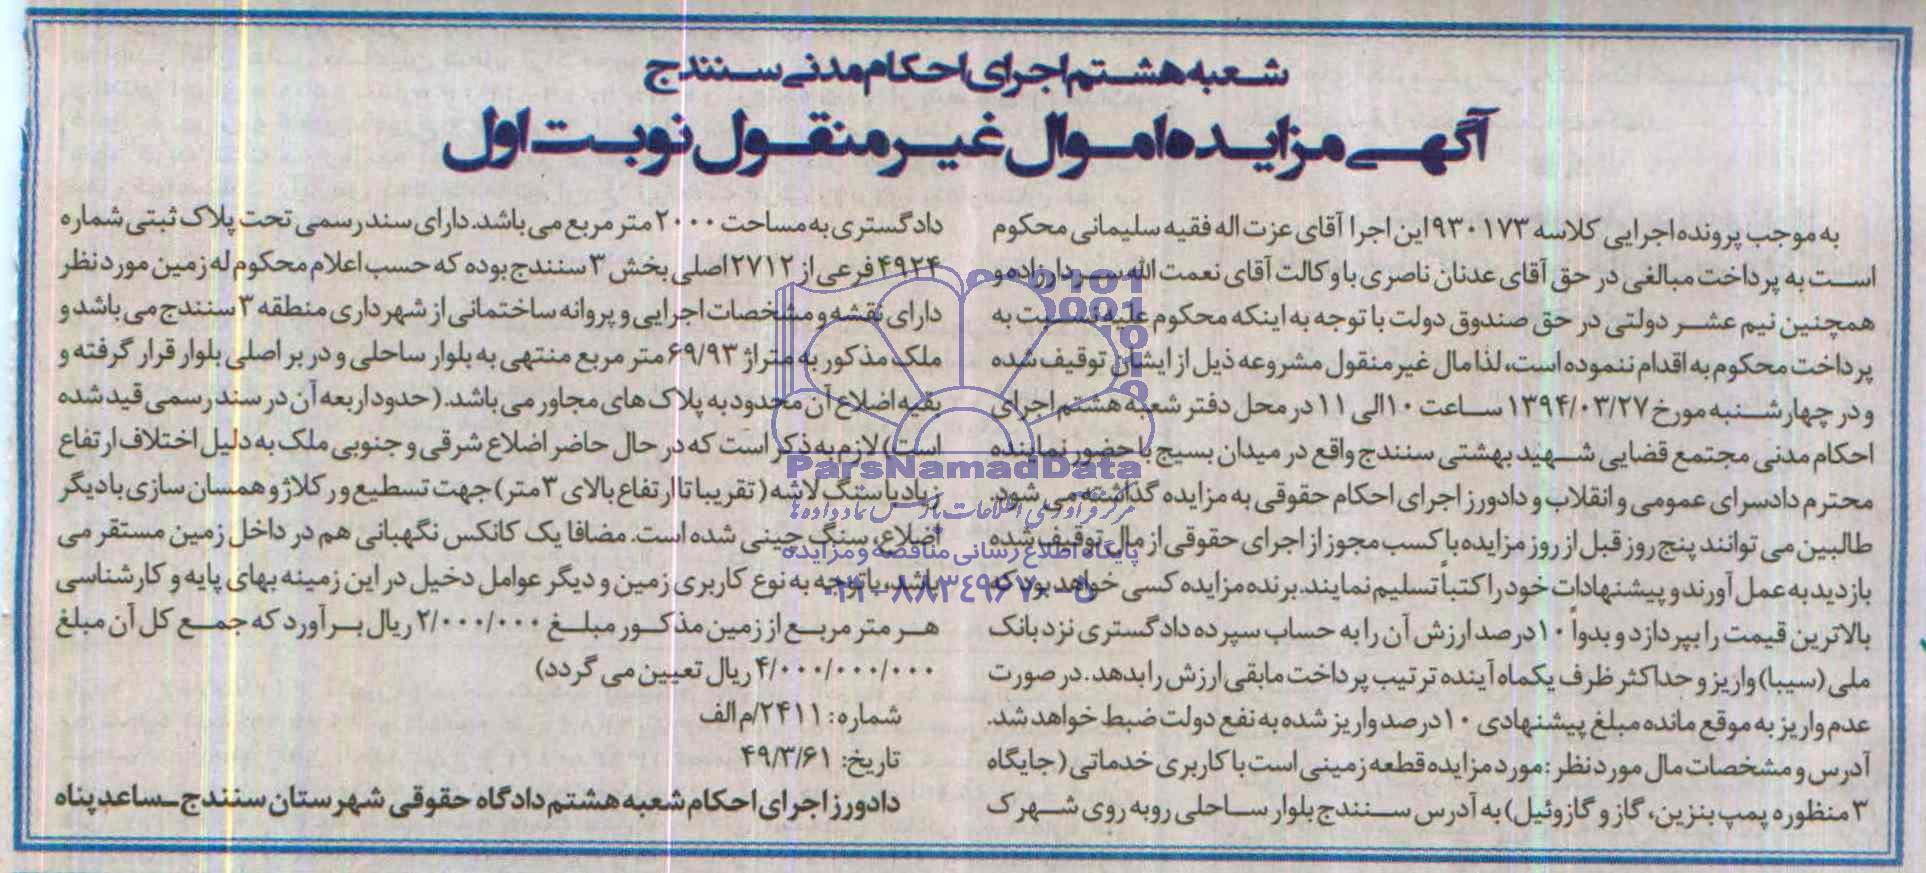 شعبه هشتم اجرای احکام مدنی سنندج
آگهی مزایده اموال غیر منقول نوبت اول
به موجب پرونده اجرایی کلاسه ۹۳۰۱۷۳ این اجرا آقای عزت اله فقیه سلیمانی محکوم
است به پرداخت مبالغی در حق آقای عدنان ناصری با وکالت آقای نعمت الله سردارزاده و
همچنین نیم عشر دولتی در حق صندوق دولت با توجه به اینکه محکوم علیه نسبت به
پرداخت محکوم به اقدام ننموده است، لذا مال غیر منقول مشروعه ذیل از ایشان توقیف شده
و در چهارشنبه مورخ ۱۳۹۴/۰۳/۲۷ ساعت ۱۰ الی ۱۱ در محل دفتر شعبه هشتم اجرای
احکام مدنی مجتمع قضایی شهید بهشتی سنندج واقع در میدان بسیج با حضور نماینده
محترم دادسرای عمومی و انقلاب و دادورز اجرای احکام حقوقی به مزایده گذاشته می شود.
طالبین می توانند پنج روز قبل از روز مزایده با کسب مجوز از اجرای حقوقی از مال توقیف شده
بازدید به عمل آورند و پیشنهادات خود را کتباً تسلیم نمایند. برنده مزایده کسی خواهد بود که
بالاترین قیمت را بپردازد و بدواً ۱۰ درصد ارزش آن را به حساب سپرده دادگستری نزد بانک
ملی (سیبا) واریز و حداکثر ظرف یکماه آینده ترتیب پرداخت مابقی ارزش را بدهد. در صورت
عدم واریز به موقع مانده مبلغ پیشنهادی ۱۰ درصد واریز شده به نفع دولت ضبط خواهد شد.
آدرس و مشخصات مال مورد نظر: مورد مزایده قطعه زمینی است با کاربری خدماتی (جایگاه
۳ منظوره پمپ بنزین، گاز و گازوئیل) به آدرس سنندج بلوار ساحلی روبه روی شهرک
دادگستری به مساحت ۲۰۰۰ متر مربع می باشد. دارای سند رسمی تحت پلاک ثبتی شماره
۴۹۲۴ فرعی از ۲۷۱۲ اصلی بخش ۳ سنندج بوده که حسب اعلام محکوم له زمین مورد نظر
دارای نقشه و مشخصات اجرایی و پروانه ساختمانی از شهرداری منطقه ۳ سنندج می باشد و
ملک مذکور به متراژ ۶۹/۹۳ متر مربع منتهی به بلوار ساحلی و در بر اصلی بلوار قرار گرفته و
بقیه اضلاع آن محدود به پلاک های مجاور می باشد. (حدود اربعه آن در سند رسمی قید شده
است) لازم به ذکر است که در حال حاضر اضلاع شرقی و جنوبی ملک به دلیل اختلاف ارتفاع
زیاد با سنگ لاشه (تقریبا تا ارتفاع بالای ۳ متر) جهت تسطیع ور کلاژ و همسان سازی با دیگر
اضلاع، سنگ چینی شده است. مضافا یک کانکس نگهبانی هم در داخل زمین مستقر می
باشد، با توجه به نوع کاربری زمین و دیگر عوامل دخیل در این زمینه بهای پایه و کارشناسی
هر متر مربع از زمین مذکور مبلغ ۲/۰۰۰/۰۰۰ ریال برآورد که جمع کل آن مبلغ
۴/۰۰۰/۰۰۰/۰۰۰ ریال تعیین می گردد)
شماره: ۲۴۱۱/م الف
تاریخ: ۴۹/۳/۶۱
دادورز اجرای احکام شعبه هشتم دادگاه حقوقی شهرستان سنندج ـ ساعد پناه
ParsNamadData
مرکز فرآوری اطلاعات پارس نماد داده ها
پایگاه اطلاع رسانی مناقصه و مزایده
۰۲۱-۸۸۳۴۹۶۷۰-۵